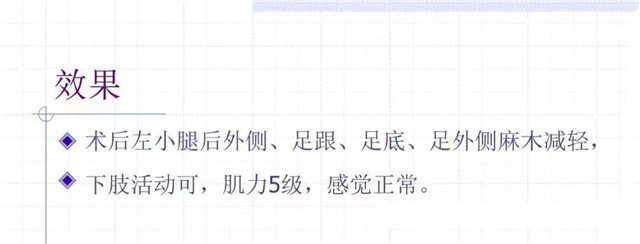 效果
术后左小腿后外侧、足跟、足底、足外侧麻木减轻，
下肢活动可，肌力5级，感觉正常。